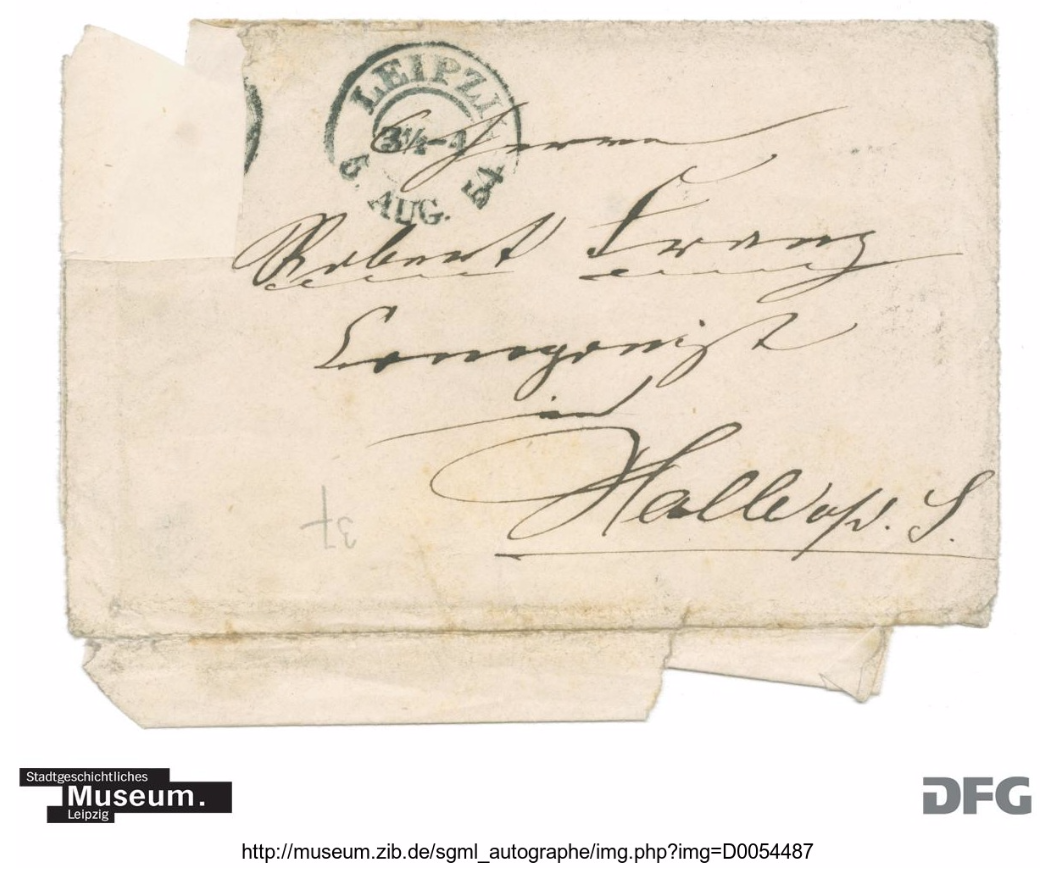 LEIPZIG
3½-4
5. AUG. 54
Herrn
Robert Franz
Componist
in
Halle a/d. S.
37
Stadtgeschichtliches
Museum.
Leipzig
DFG
http://museum.zib.de/sgml_autographe/img.php?img=D0054487